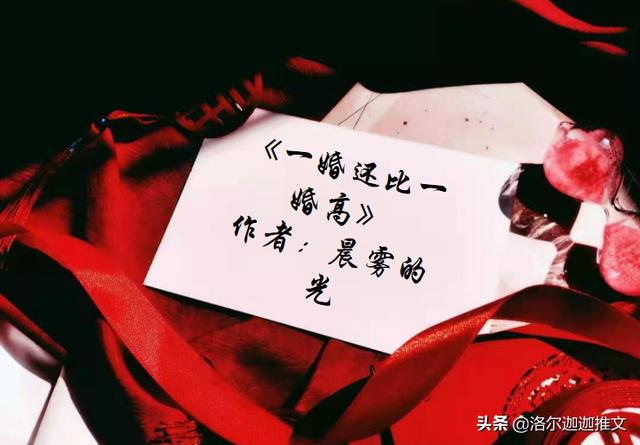 《一婚还比一
婚高》
作者：晨雾的
光
头条 @洛尔迦迦推文